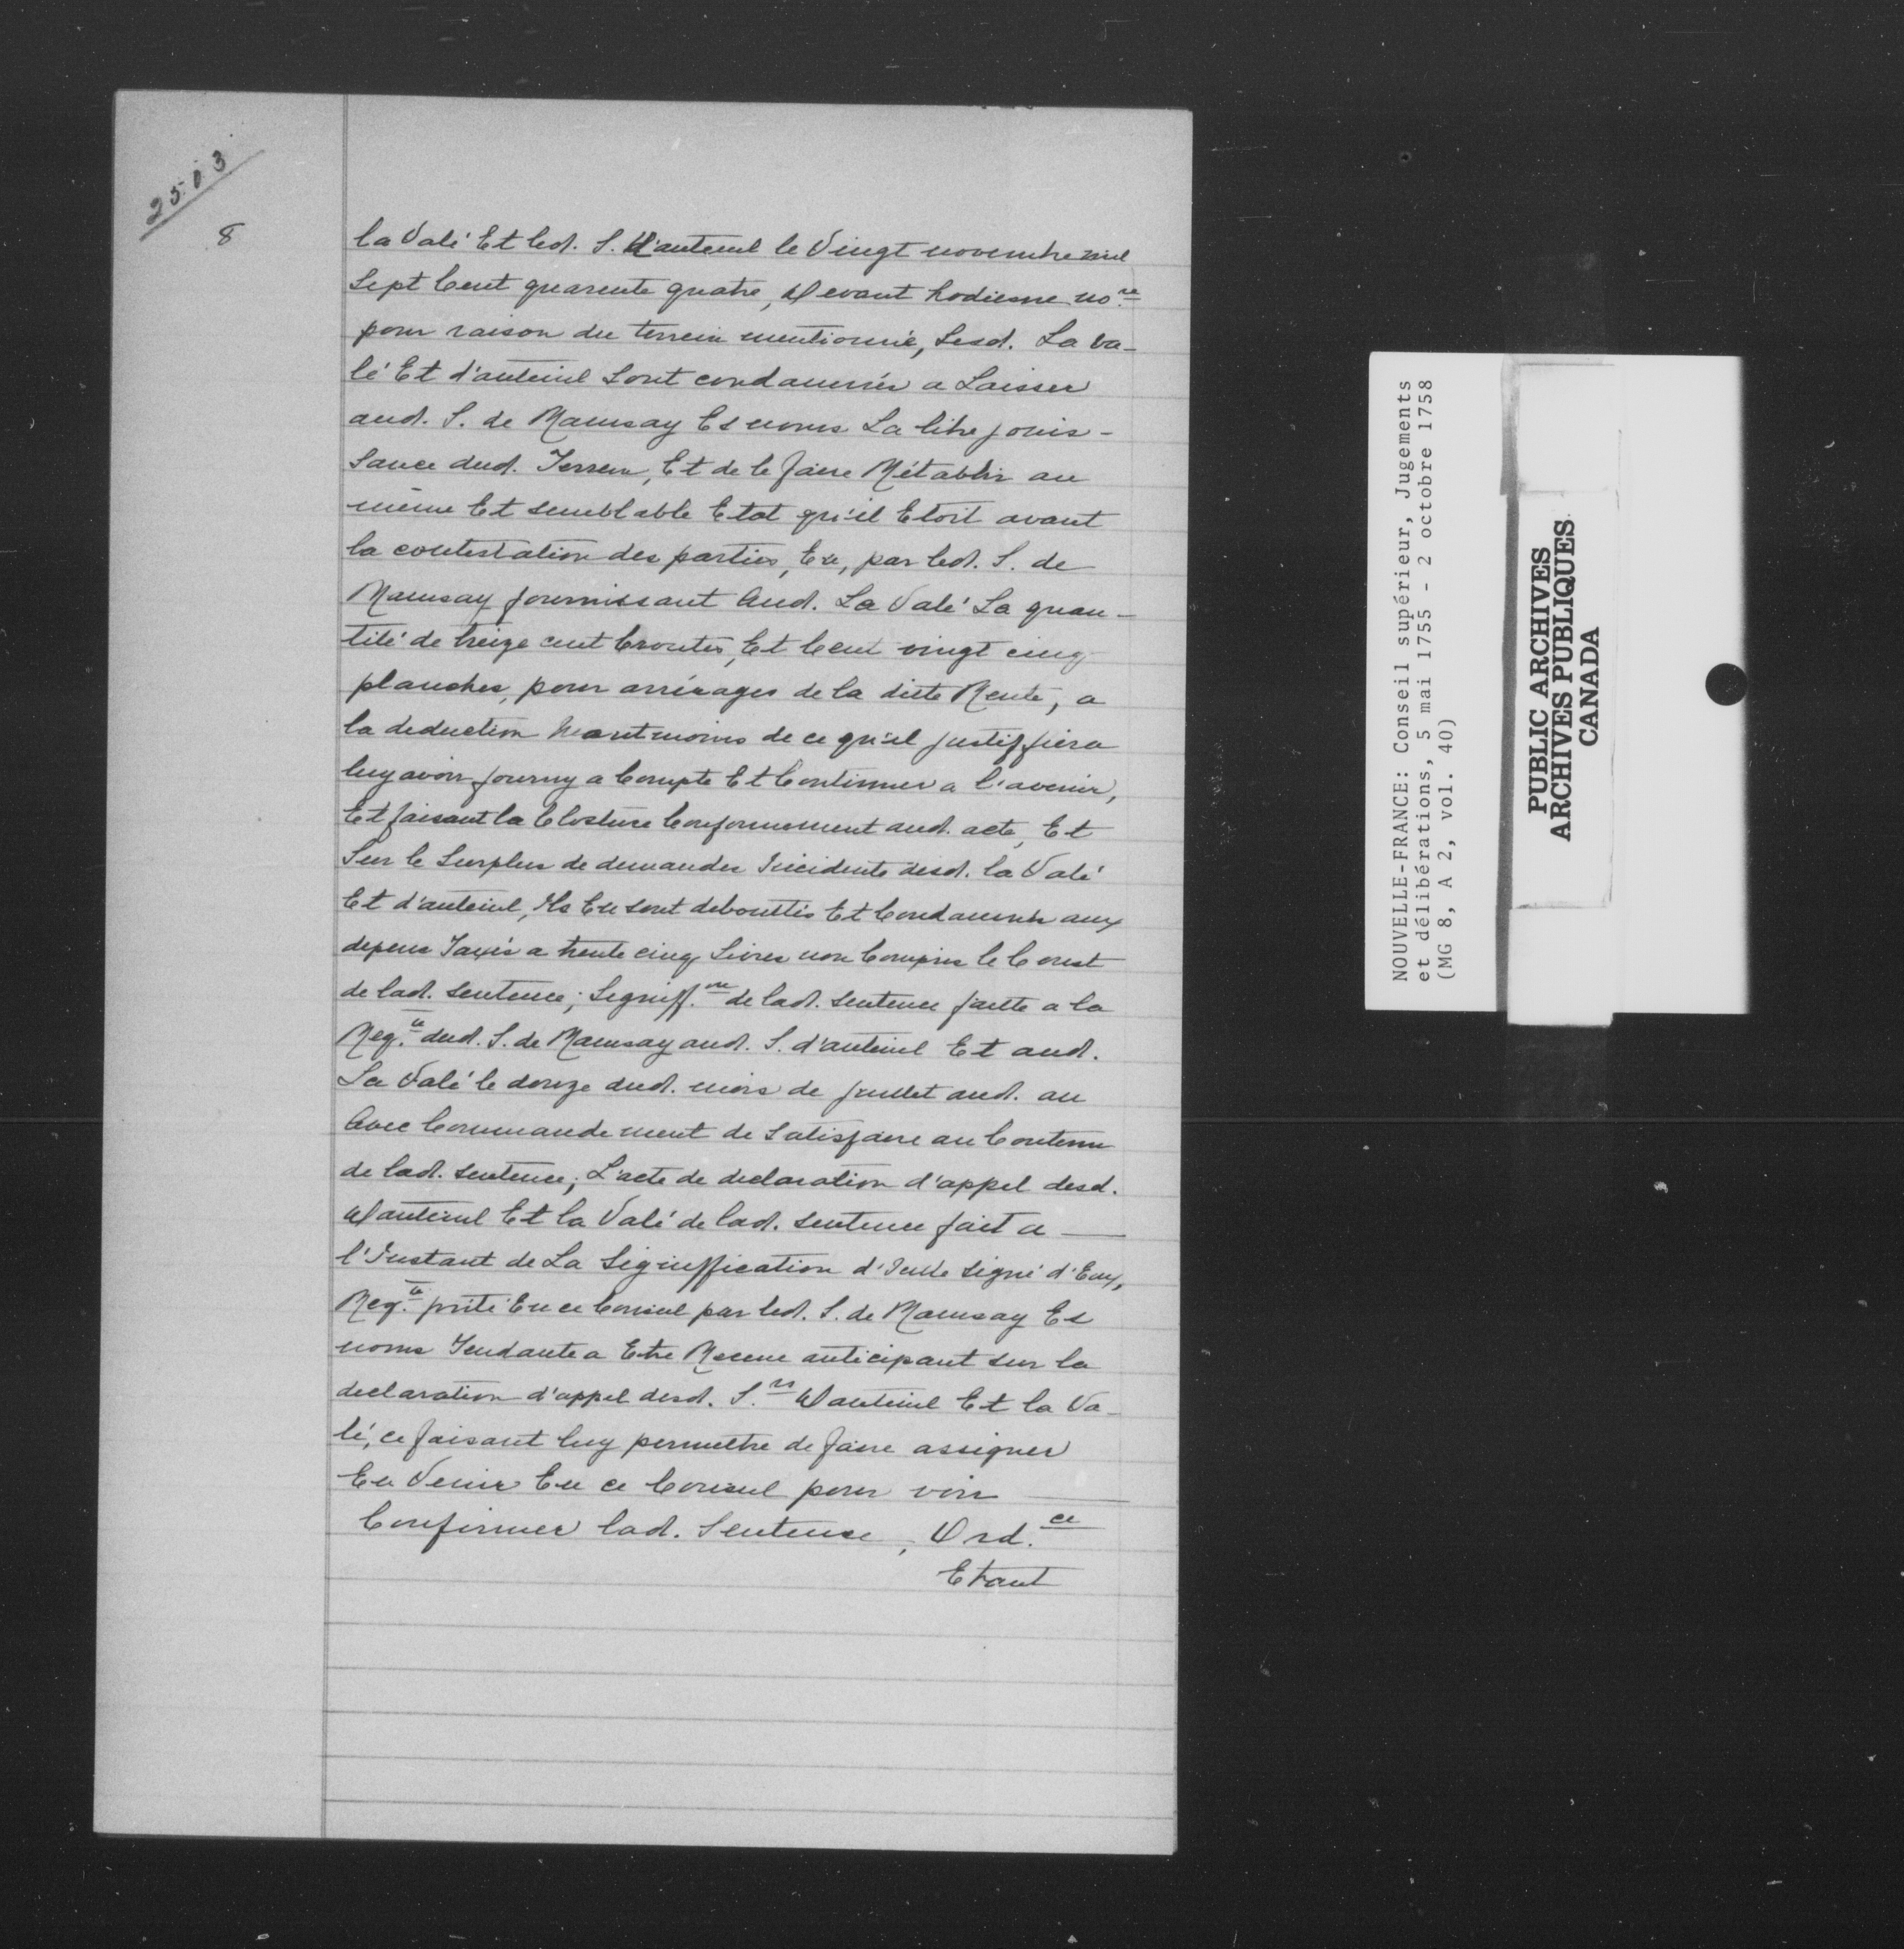 2503
8
la Valé Et led. S. D'auteuil le Vingt novembre mil
Sept Cent quarente quatre, Devant hodiesne no.re
pour raison du terrein mentionné, Lesd. La Va-
lé Et d'auteuil Sont condamnés a Laisser
aud. S. de Ramsay Es noms La libre jouis-
sance dud. Terrein, Et de le faire Rétablir au
même Et semblable Etat qu'il Etoit avant
la contestation des parties, En, par led. S. de
Ramsay fournissant Aud. La Valé La quan-
tité de treize cent Croutes, Et Cent vingt cinq
planches, pour arrérages de la ditte Rente, a
la deduction neantmoins de ce qu'il justiffiera
luy avoir fourny a Compte Et Continuer a l'avenir,
Et faisant la Closture Conformement aud. acte, Et
Sur le Surplus de demandes Incidente desd. la Valé
Et d'auteuil, Ils En sont debouttés Et Condamnés aux
depens Taxés a trente cinq Livres non Compris le Coust
de lad. Sentence; Signiff.on de lad. sentence faitte a la
Req.te dud. S. de Ramsay aud. S. d'auteuil Et aud.
La Valé le douze dud. mois de juillet aud. an
Avec Commandement de Satisfaire au Contenu
de lad. sentence; L'acte de declaration d'appel desd.
Dauteuil Et la Valé de lad. sentence fait a
l'Instant de La Signiffication d'Icelle signé d'Eux,
Req.te ṕnté En ce Conseil par led. S. de Ramsay Es
noms Tendante a Etre Receue anticipant sur la
declaration d'appel desd. S.rs Dauteuil Et la Va-
lé, ce faisant luy permettre de faire assigner
En Venir En ce Conseil pour voir
Confirmer lad. Sentence, Ord.ce
Etant
NOUVELLE-FRANCE: Conseil supérieur, Jugements
et délibérations, 5 mai 1755 - 2 octobre 1758
(MG 8, A 2, vol. 40)
PUBLIC ARCHIVES
ARCHIVES PUBLIQUES
CANADA